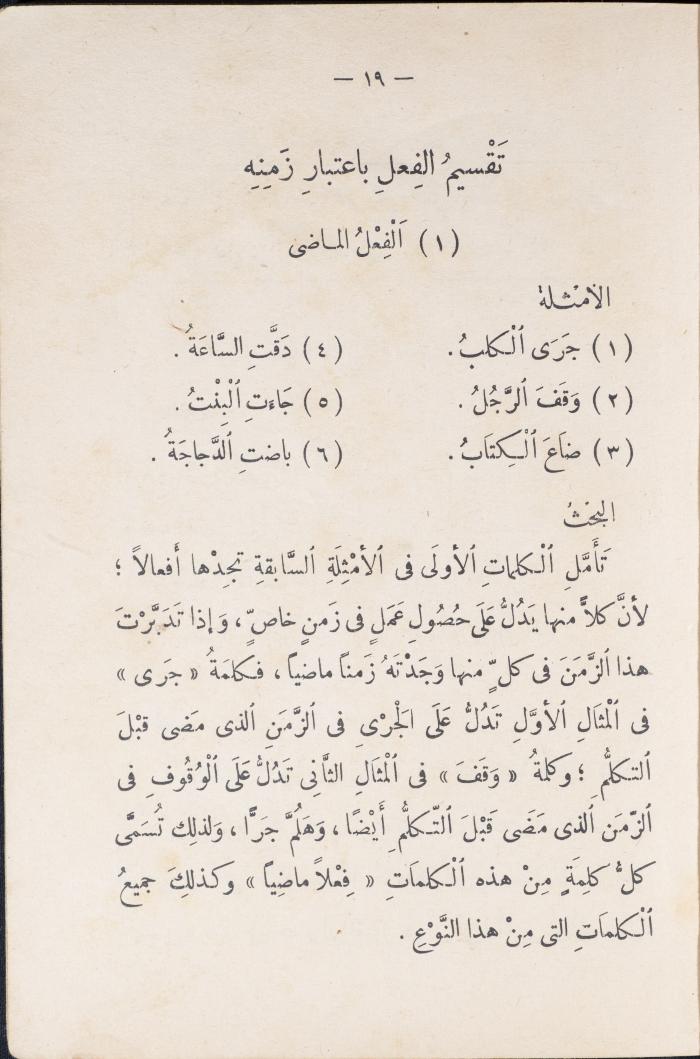 — ١٩ —
تَقْسيمُ الفِعلِ باعتبارِ زَمِنِهِ
(١) اَلْفِعْلُ الماضى
الأمْثلة
(١) جَرَى ٱلْكلبُ. (٤) دَقَّتِ السَّاعَةُ.
(٢) وَقَفَ ٱلرَّجُلُ. (٥) جَاءَتِ ٱلْبِنْتُ.
(٣) ضَاعَ ٱلْكِتَابُ. (٦) باضتِ ٱلدَّجاجَةُ.
البحْثُ
تَأَمَّلِ ٱلْكلماتِ ٱلأولَى فى ٱلأمْثِلَةِ ٱلسَّابقةِ تجِدْها أَفعالاً ؛
لأنَّ كلاًّ منها يَدُلُّ عَلَى حُصُولِ عَمَلٍ فى زَمنٍ خاصٍّ ، وَإذا تَدَبَّرْتَ
هذا ٱلزَّمَنَ فى كلٍّ منها وَجَدْتَهُ زَمناً ماضياً ، فكلمَةُ « جَرى »
فى ٱلْمثالِ ٱلأوَّلِ تَدُلُّ عَلَى ٱلْجْرْىِ فى ٱلزَّمَنِ ٱلذى مَضى قبْلَ
ٱلتكلُّمِ ؛ وكلمةُ « وَقَفَ » فى ٱلْمْثالِ الثَّانِى تَدُلُّ عَلَى ٱلْوُقُوفِ فى
ٱلزّمَن ٱلذى مَضَى قَبْلَ ٱلتّكلُّمِ أَيْضًا ، وَهَلُمَّ جَرًّا ، وَلذلِك تُسَمَّى
كلُّ كلِمَةٍ مِنْ هذه ٱلْكلمَاتِ « فِعْلاً ماضِياً » وكذلِكَ جميعُ
ٱلْكلمَاتِ التى مِنْ هذا النَّوْعِ .